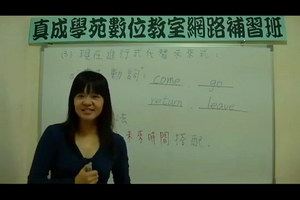 真成學苑數位教室網路補習班
(3) 現在進行式代替未來式：
動詞" come go
return, leave
未來時間搭配.